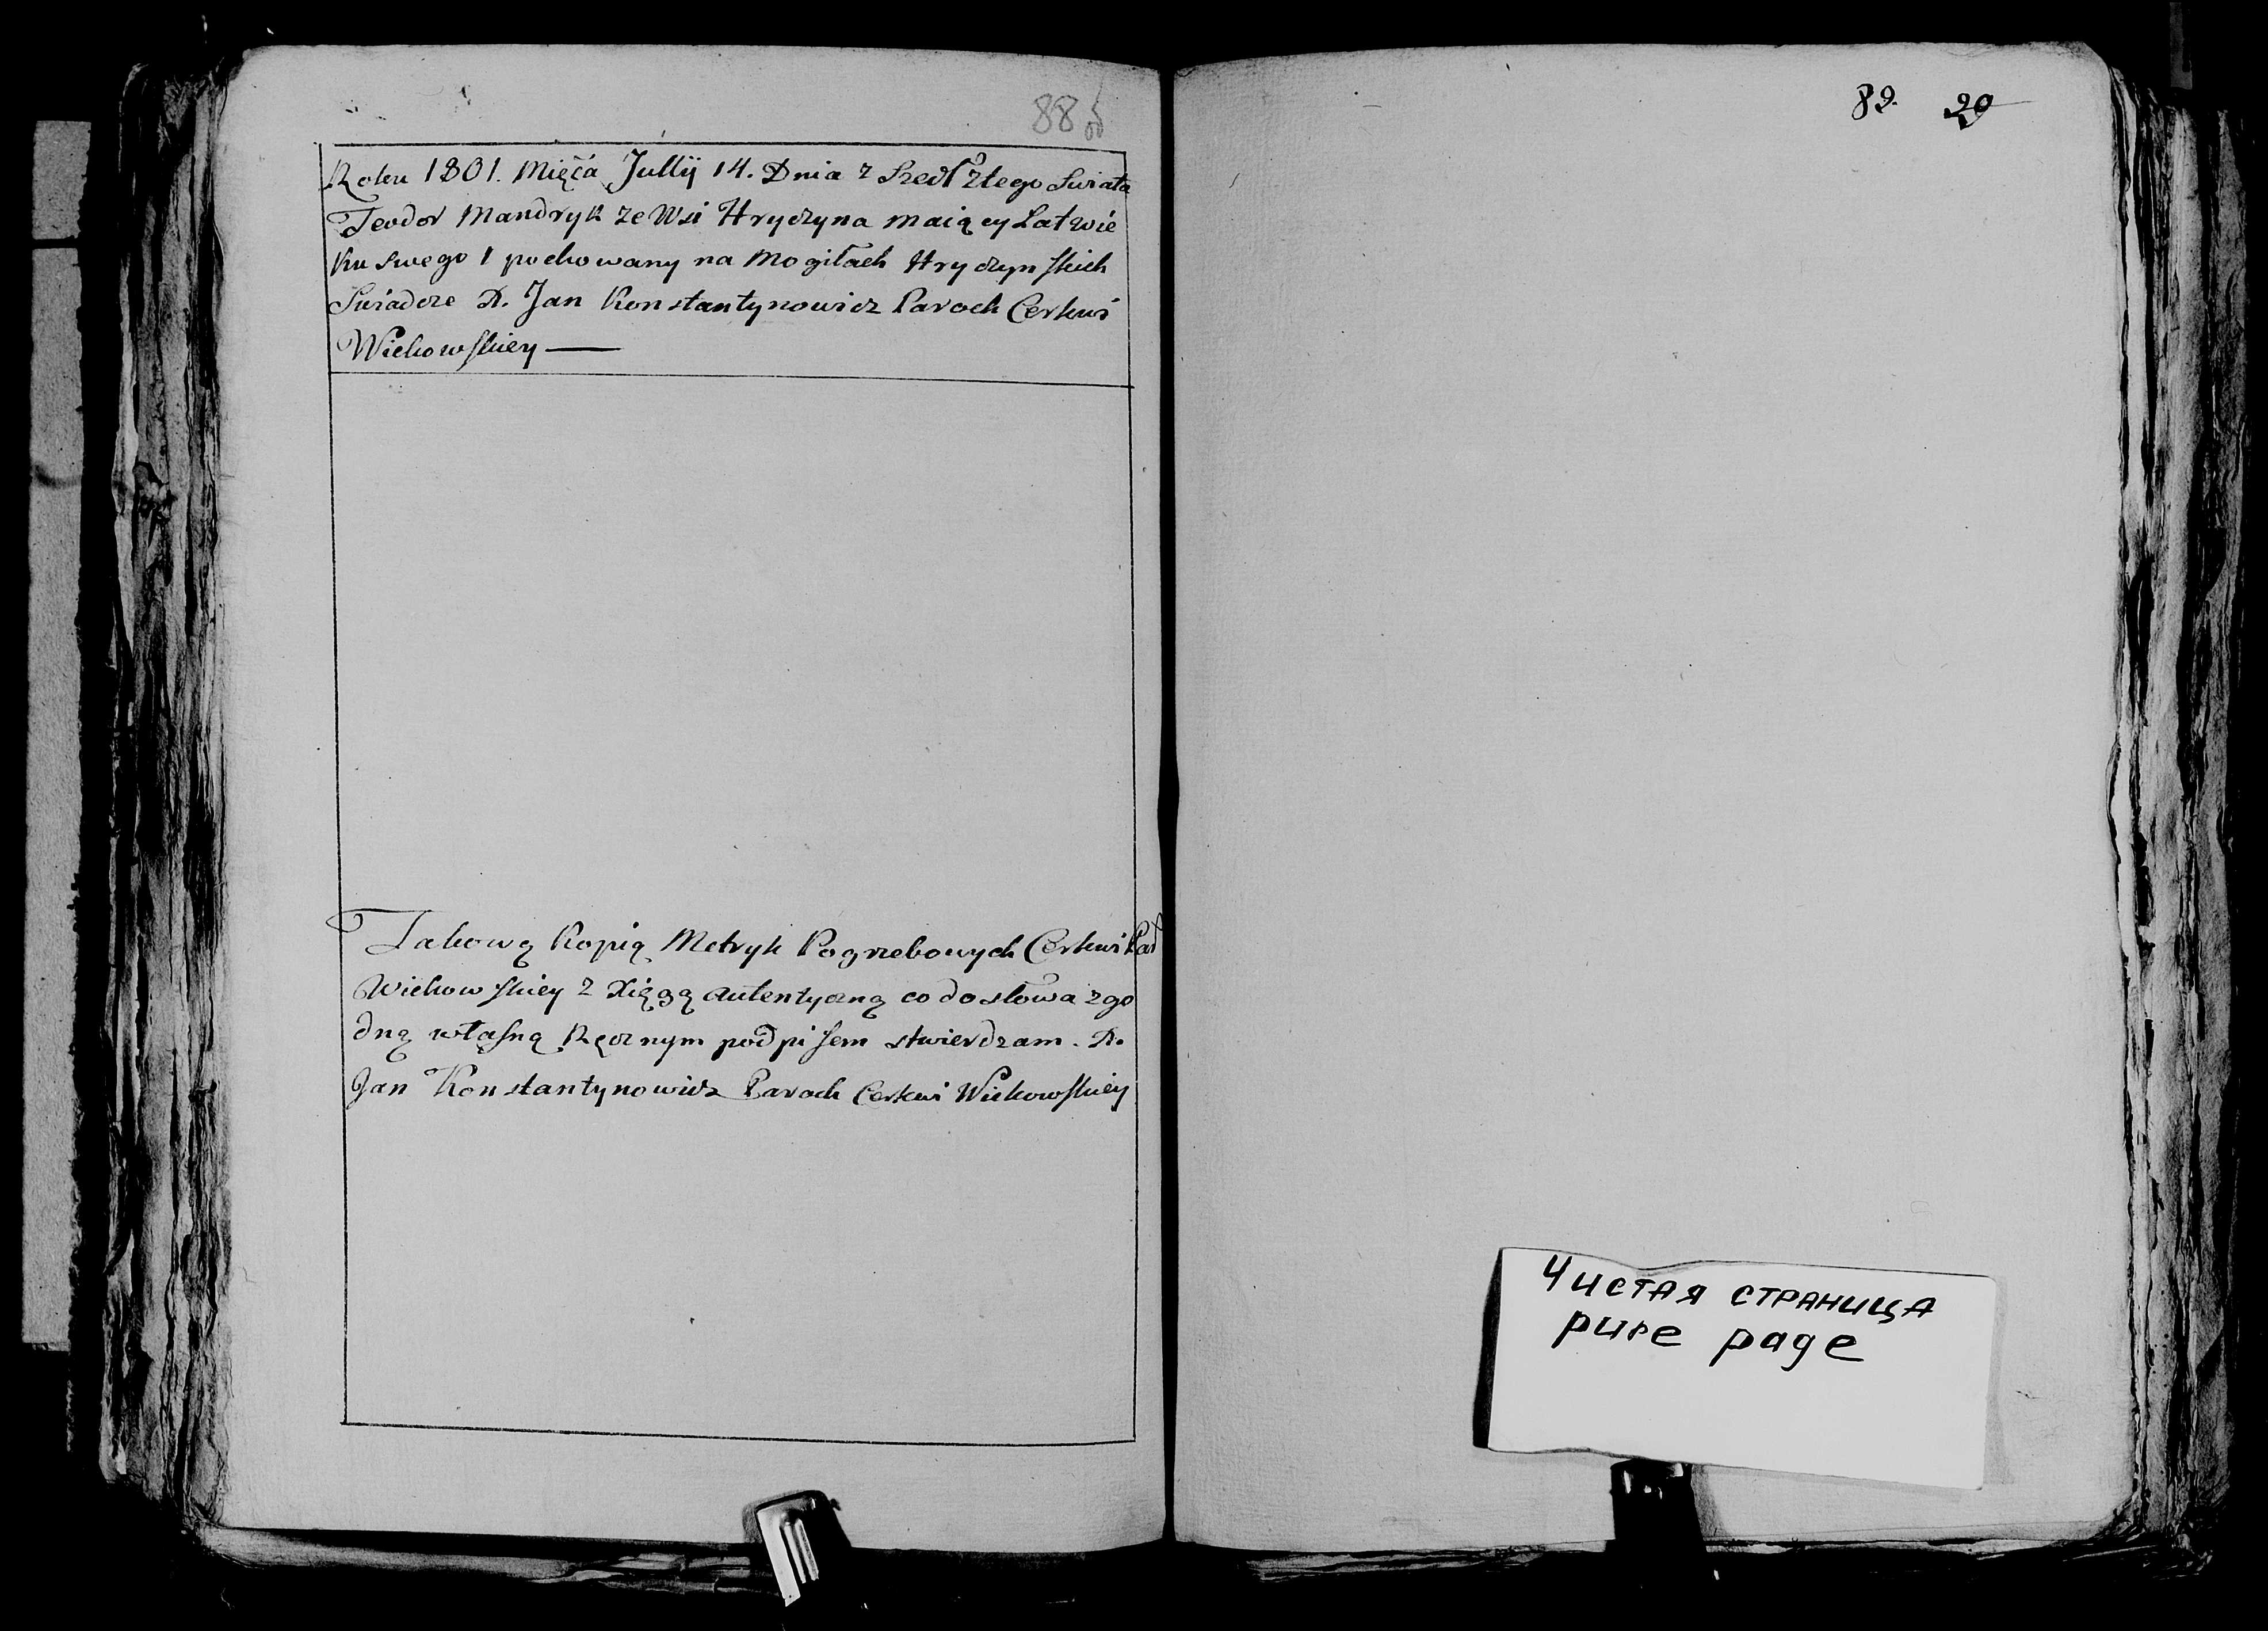 88 об
Roku 1801. Mięćá Jullij 14. Dnia z Szedł ztego Swiata
Teodor Mandryk ze Wsi Hryczyna maiący Lat wie
ku swego 1 pochowany na Mogiłach Hryczynskich
Swiadcze X. Jan Konstantynowicz Paroch Cerkwi
Wickowskiey —
Takową Kopią Metryk Pogrzebowych Cerkwi Par
Wickowskiey z Xięgą autentyczną co do słowa zgo
dną własną Ręcznym podpisem stwierdzam. X.
Jan Konstantynowicz Paroch Cerkwi Wickowskiey
89. 90
Чистая страница
pure page